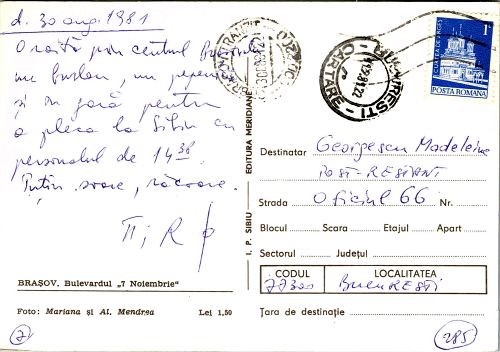 d. 30 aug. 1981
O raită prin centrul
un burlan, un pepene
și în gară pentru
a pleca la Sibiu cu
personalul de 14 38
Puțin soare, răcoare.
BRAȘOV. Bulevardul „7 Noiembrie”
Foto: Mariana și Al. Mendrea
Lei 1,50
7
I. P. SIBIU
EDITURA MERIDIANE
BUCUREȘTI
CARTARE
CURTEA DE ARGEȘ
1L
POSTA ROMANA
Destinatar Georgescu Madeleine
POST-RESTANT
Strada Oficiul 66 Nr.
Blocul Scara Etajul Apart
Sectorul Județul
CODUL LOCALITATEA
77300 BUCUREȘTI
Țara de destinație
285